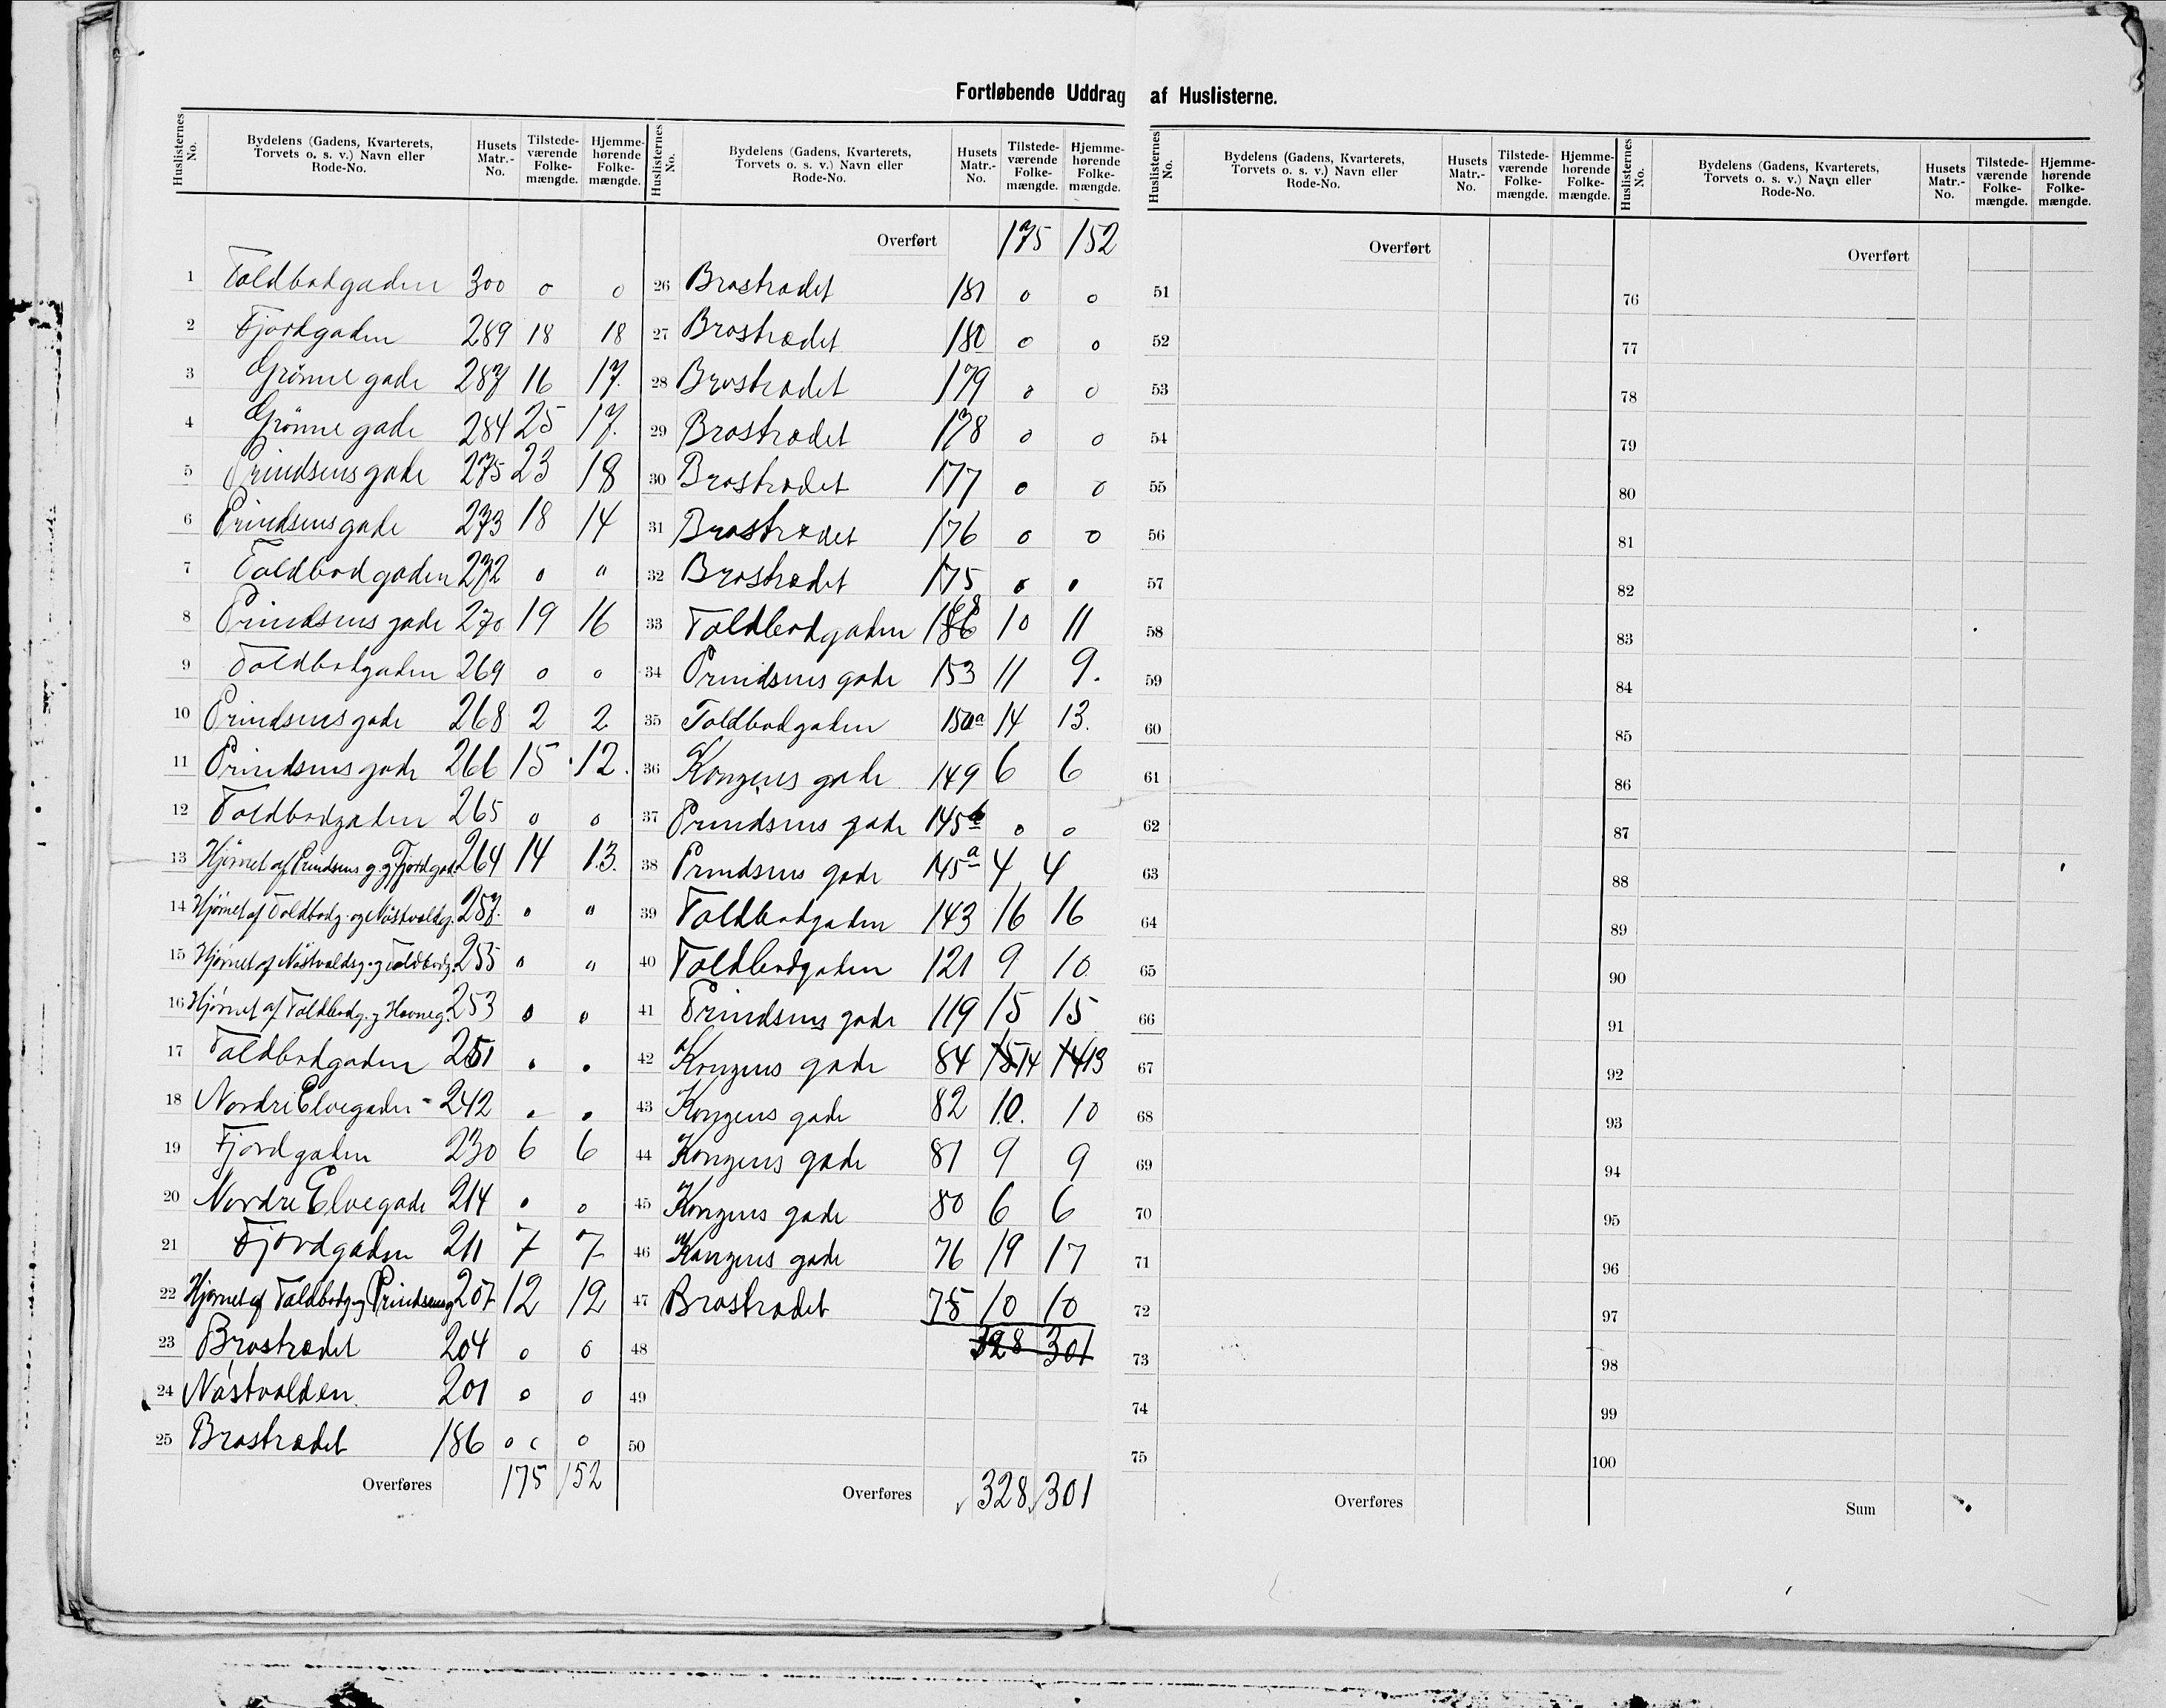 Fortløbende Uddrag af Huslisterne.
Huslisternes No. Bydelens (Gadens, Kvarterets, Torvets o. s. v.) Navn eller Rode-No. Husets Matr.-No. Tilstedeværende Folkemængde. Hjemmehørende Folkemængde.
1 Toldbodgaden 300 0 0
2 Fjordgaden 289 18 18
3 Grönne gade 287 16 17.
4 Grönne gade 284 25 17.
5 Prindsens gade 275 23 18
6 Prindsens gade 273 18 14
7 Toldbodgaden 272 0 "
8 Prindsens gade 270 19 16
9 Toldbodgaden 269 0 0
10 Prindsens gade 268 2 2
11 Prindsens gade 266 15 12.
12 Toldbodgaden 265 0 0
13 Hjörnet af Prindsens g. og Fjordgad. 264 14 13.
14 Hjörnet af Toldbodg. og Nöstvoldg. 257. 0 0
15 Hjörnet af Nöstvoldsg. og Toldbodg. 255 0 0
16 Hjörnet af Toldbodg. og Havneg. 253 0 0
17 Toldbodgaden 251 0 0
18 Nordre Elvegaden - 242 0 0
19 Fjordgaden 230 6 6
20 Nordre Elvegade 214 0 0
21 Fjordgaden 211 7 7
22 Hjörnet af Toldbodg. og Prindsensg 207 12 12
23 Brostrædet 204 0 0
24 Nöstvolden 201 0 0
25 Brostrædet 186 0 0
Overføres 175 152
Huslisternes No. Bydelens (Gadens, Kvarterets, Torvets o. s. v.) Navn eller Rode-No. Husets Matr.-No. Tilstedeværende Folkemængde. Hjemmehørende Folkemængde.
Overført 175 152
26 Brostrædet 181 0 0
27 Brostrædet 180 0 0
28 Brostrædet 179 0 0
29 Brostrædet 178 0 0
30 Brostrædet 177 0 0
31 Brostrædet 176 0 0
32 Brostrædet 175 0 0
33 Toldbodgaden 10 11
34 Prindsens gade 153 11 9.
35 Toldbodgaden 150a 14 13.
36 Kongens gade 149 6 6
37 Prindsens gade 145b 0 0
38 Prindsens gade 145a 4 4
39 Toldbodgaden 143 16 16
40 Toldbodgaden 121 9 10
41 Prindsens gade 119 15 15
42 Kongens gade 84 15 14 14 13
43 Kongens gade 82 10. 10
44 Kongens gade 81 9 9
45 Kongens gade 80 6 6
46 Kongens gade 76 19 17
47 Brostrædet 75 10 10
48 328 301
49
50
Overføres 328 301
Huslisternes No. Bydelens (Gadens, Kvarterets, Torvets o. s. v.) Navn eller Rode-No. Husets Matr.-No. Tilstedeværende Folkemængde. Hjemmehørende Folkemængde.
Overført
51
52
53
54
55
56
57
58
59
60
61
62
63
64
65
66
67
68
69
70
71
72
73
74
75
Overføres
Huslisternes No. Bydelens (Gadens, Kvarterets, Torvets o. s. v.) Navn eller Rode-No. Husets Matr.-No. Tilstedeværende Folkemængde. Hjemmehørende Folkemængde.
Overført
76
77
78
79
80
81
82
83
84
85
86
87
88
89
90
91
92
93
94
95
96
97
98
99
100
Sum